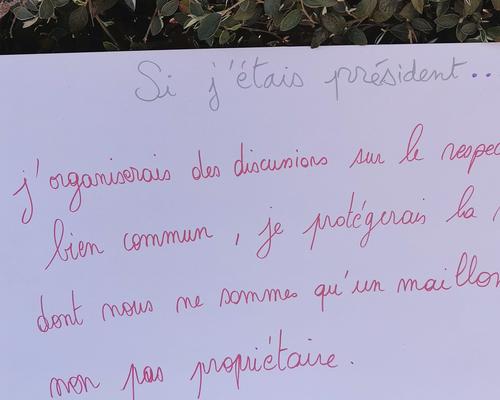 Si j'étais président...
j'organiserais des discussions sur le respec
bien commun, je protégerais la
dont nous ne sommes qu'un maillon
non pas propriétaire.